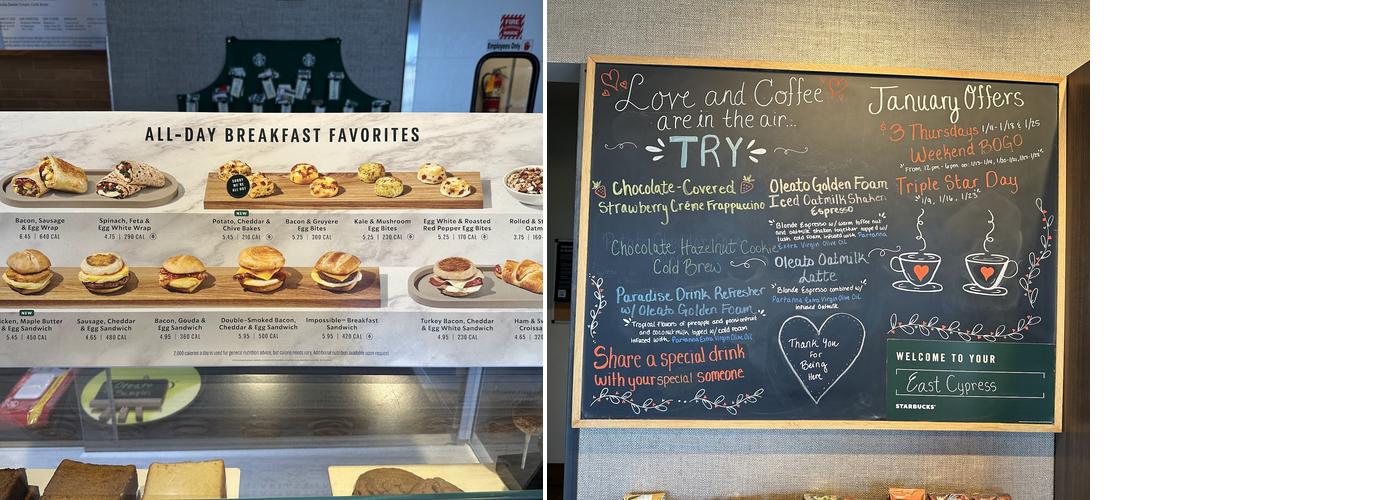 FIRE
Employees Only
ALL-DAY BREAKFAST FAVORITES
SORRY
WE'RE
ALL OUT
Bacon, Sausage
& Egg Wrap
6.45 | 640 CAL
Spinach, Feta &
Egg White Wrap
4.75 | 290 CAL
NEW
Potato, Cheddar &
Chive Bakes
5.45 | 210 CAL
Bacon & Gruyère
Egg Bites
5.25 | 300 CAL
Kale & Mushroom
Egg Bites
5.25 | 230 CAL
Egg White & Roasted
Red Pepper Egg Bites
5.25 | 170 CAL
Rolled & St
Oatm
3.75 | 160-
NEW
icken, Maple Butter
& Egg Sandwich
5.45 | 450 CAL
Sausage, Cheddar
& Egg Sandwich
4.65 | 480 CAL
Bacon, Gouda &
Egg Sandwich
4.95 | 360 CAL
Double-Smoked Bacon,
Cheddar & Egg Sandwich
5.95 | 500 CAL
Impossible™ Breakfast
Sandwich
4.95 | 420 CAL
Turkey Bacon, Cheddar
& Egg White Sandwich
4.95 | 230 CAL
Ham & Sw
Croissa
4.65 | 320
2,000 calories a day is used for general nutrition advice, but calorie needs vary. Additional nutrition available upon request.
Love and Coffee
are in the air...
TRY
Chocolate-Covered
Strawberry Créme Frappuccino
Chocolate Hazelnut Cookie
Cold Brew
Paradise Drink Refresher
w/ Oleato Golden Foam
Tropical flavors of pineapple and passionfruit
and coconutmilk topped w/ cold foam
infused with Partanna Extra Virgin Olive Oil
Share a special drink
with your special someone
Oleato Golden Foam
Iced Oatmilk Shaken
Espresso
Blonde Espresso w/ warm toffee nut
and oatmilk shaken together topped w/
lush cold foam, infused with Partanna
Extra Virgin Olive Oil
Oleato Oatmilk
Latte
Blonde Espresso combined w/
Partanna Extra Virgin Olive Oil
infused Oatmilk
Thank You
For
Being
Here
January Offers
$3 Thursdays 1/11-1/18 & 1/25
Weekend BOGO
Triple Star Day
1/9, 1/16, 1/23
WELCOME TO YOUR
East Cypress
STARBUCKS